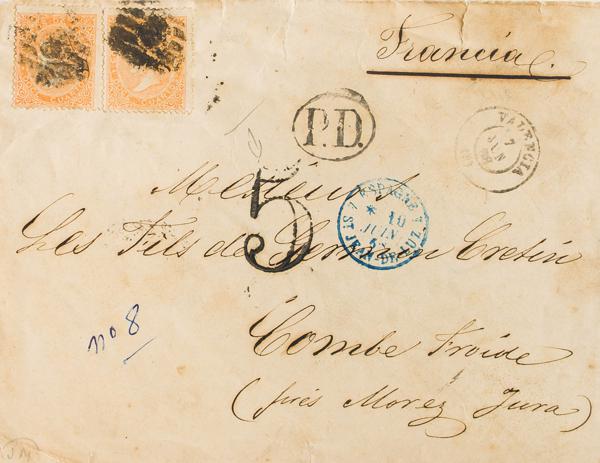 Francia.
P.D.
VALENCIA
7
JUN
68
Messieurs
5
ESPAGNE
10
JUIN
68
ST JEAN-DE-LUZ
Les Fils de Germain Cretin
no 8
Combe Froide
(près Morez Jura)